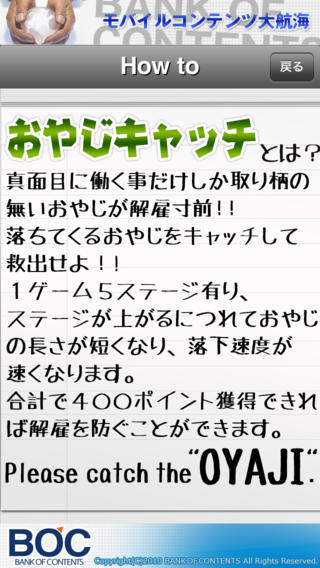 BANK OF
CONTENTS
モバイルコンテンツ大航海
How to
戻る
おやじキャッチとは？
真面目に働く事だけしか取り柄の
無いおやじが解雇寸前!!
落ちてくるおやじをキャッチして
救出せよ！！
１ゲーム５ステージ有り、
ステージが上がるにつれておやじ
の長さが短くなり、落下速度が
速くなります。
合計で４００ポイント獲得できれ
ば解雇を防ぐことができます。
Please catch the "OYAJI".
BOC
BANK OF CONTENTS
Copyright(C)2010 BANK OF CONTENTS All Rights Reserved.